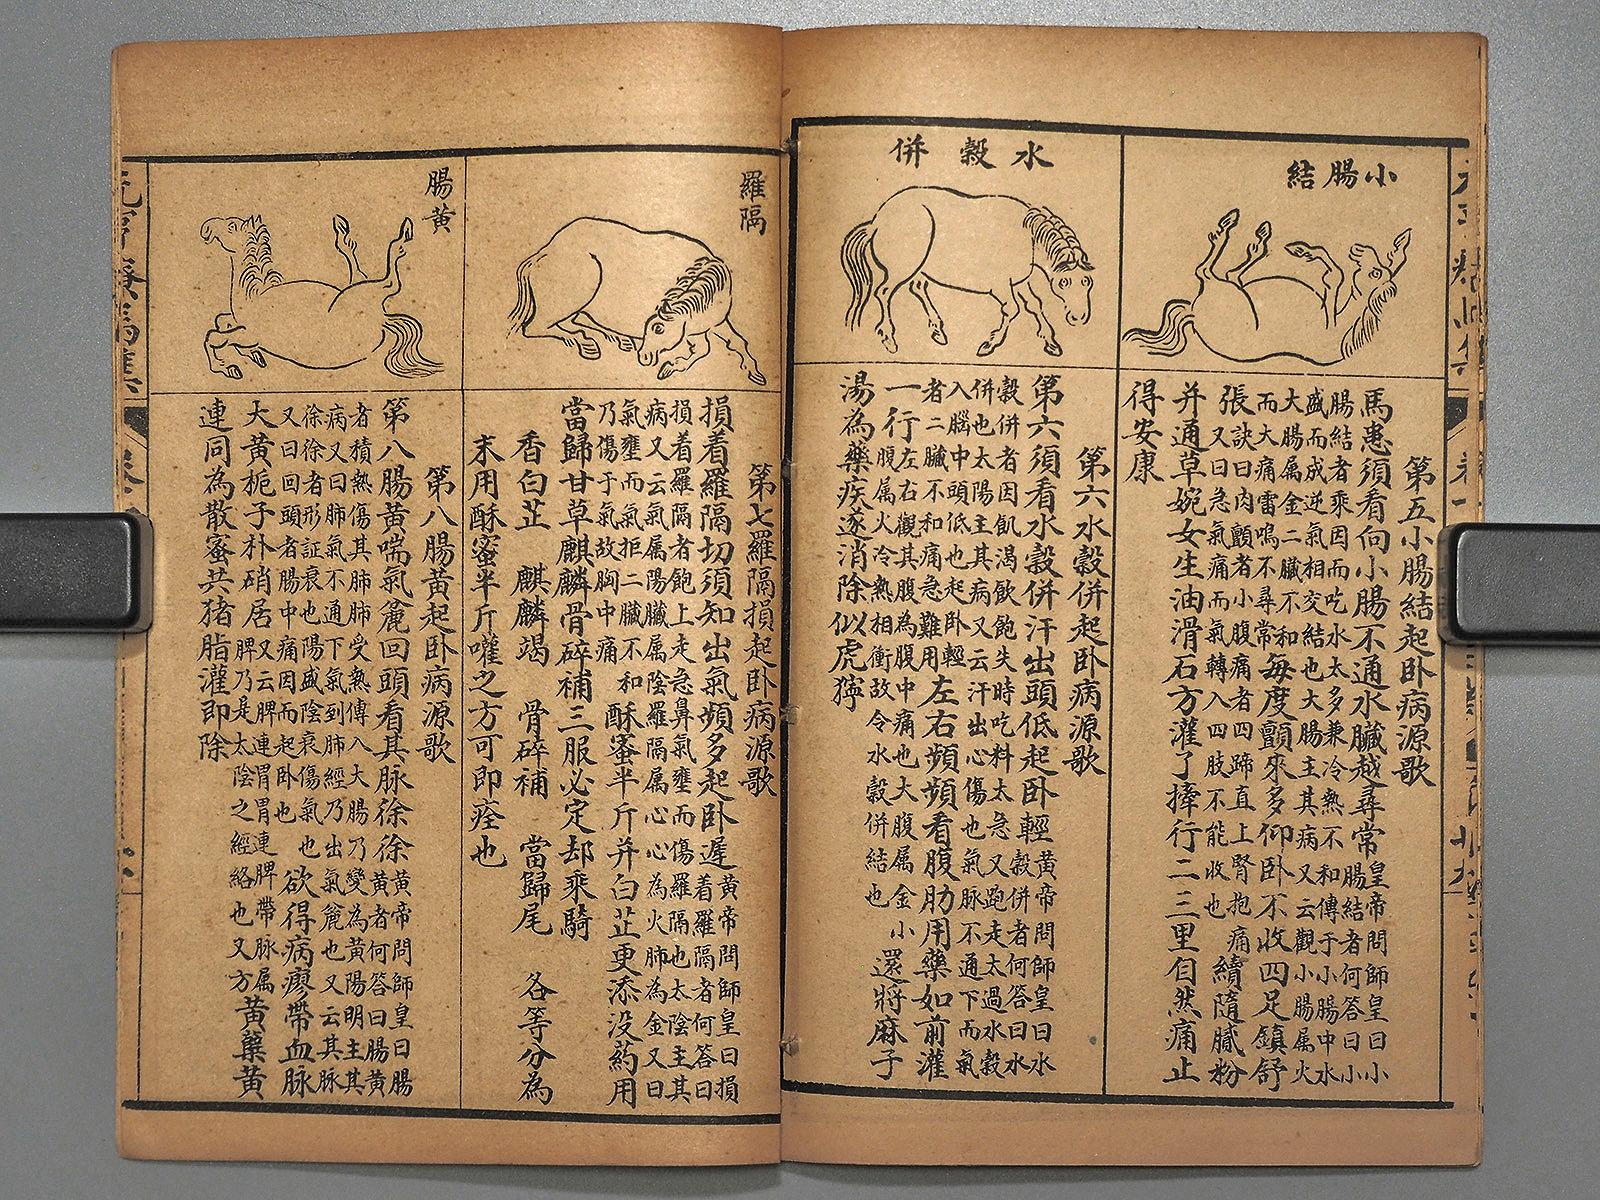 小腸結
第五小腸結起卧病源歌
馬患須看何小腸不通水臟越尋常
皇帝問師皇曰小
腸結者何答曰小
腸結者乘因而吃水太多兼冷熱不和傳于小腸中水
盛而成逆氣相交結也大腸主其病又云觀小腸属火
大腸属金二臟不和
而大痛雷鳴不尋常
每度顫來多仰卧不收四足鎮舒
張
訣曰肉顫者小腹痛者四蹄直上腎抱痛
又曰急氣痛而氣轉入四肢不能收也
續隨膩粉
并通草婉女生油滑石方灌了㨃行二三里自然痛止
得安康
水穀併
第六水穀併起卧病源歌
第六須看水穀併汗出頭低起卧輕
黄帝問師皇曰水
穀併者何答曰水
穀併者因飢渴飲飽失時吃料太急又跑走太過水穀
併也太陽主其病又云汗出心傷也氣脉不通下而氣
入腦中頭低也起卧輕
者二臟不和痛急難用
左右頻頻看腹肋用藥如前灌
一行
左右觀其腹為腹中痛也大腹属金小
腹属火冷熱相衝故令水穀併結也
還將麻子
湯為藥疾遂消除似虎獰
羅隔
第七羅隔損起卧病源歌
損着羅隔切須知出氣頻多起卧遲
黄帝問師皇曰損
着羅隔者何答曰
損着羅隔者飽上走急鼻氣壅而傷羅隔也太陰主其
病又云氣属陽臟属陰羅隔属心心為火肺為金又曰
氣壅而氣拒二臟不和
乃傷于氣故胸中痛
酥蜜半斤并白芷更添没药用
當歸甘草麒麟骨碎補三服必定却乘騎
香白芷 麒麟竭 骨碎補 當歸尾 各等分為
末用酥蜜半斤嚾之方可即痊也
腸黄
第八腸黄起卧病源歌
第八腸黄喘氣麄回頭看其脉徐徐
黄帝問師皇曰腸
黄者何答曰腸黄
者積熱傷其肺肺受熱傳入大腸乃變為黄陽明主其
病又曰肺氣不通下氣到肺經乃出氣麄也又云其脉
徐徐者形証衰也陽盛陰衰傷氣也
又曰回頭者腸中痛因而起卧也
欲得病廖帶血脉
大黄栀子朴硝居
脾又云脾連胃胃連脾帶脉属
乃是太陰之經絡也又方
黄藥黄
連同為散蜜共猪脂灌即除